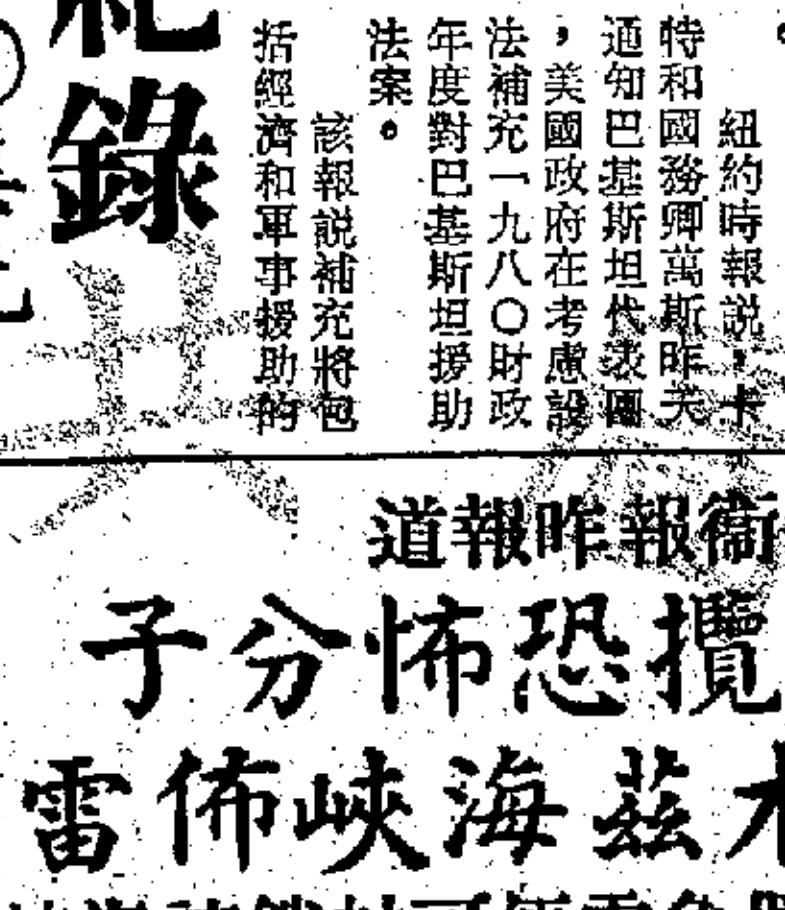 紐約時報説，卡
特和國務卿萬斯昨天
通知巴基斯坦代表團
，美國政府在考慮設
法補充一九八〇財政
年度對巴基斯坦援助
法案。
該報説補充將包
括經濟和軍事援助的
錄
衞報昨報道
攬恐怖分子
茲海峽佈雷